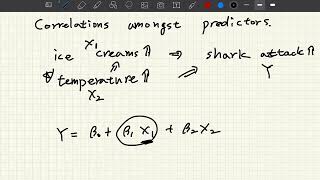 Correlations amongst predictors.
X₁
ice creams ⇑ ⇒ shark attack ⇑
⇑
temperature ⇑ ⇒ Y
X₂
Y = β₀ + β₁ X₁ + β₂ X₂